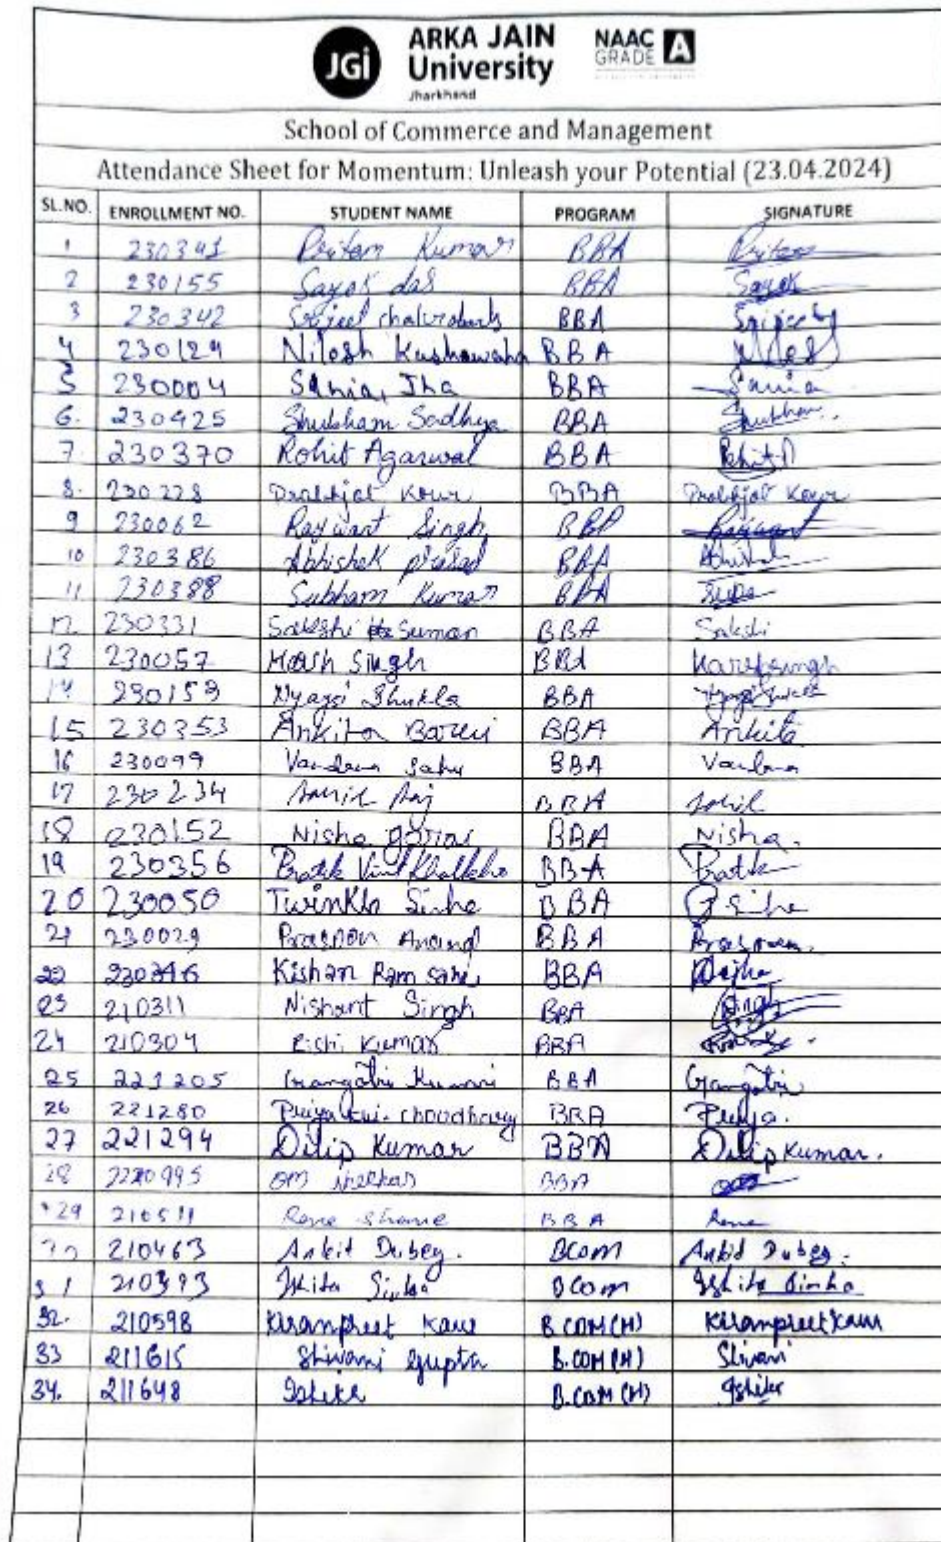 JGi ARKA JAIN University Jharkhand NAAC GRADE A
School of Commerce and Management
Attendance Sheet for Momentum: Unleash your Potential (23.04.2024)
SL.NO. ENROLLMENT NO. STUDENT NAME PROGRAM SIGNATURE
1 230341 Pritam Kumar BBA
2 230155 Sayok das BBA Sayok
3 230342 BBA
4 230129 Nilesh Kushawaha BBA
5 230004 Sania Jha BBA Sania
6. 230425 Shubham Sadhya BBA Shubham.
7. 230370 Rohit Agarwal BBA Rohit A
8. 230228 Prabhjot Kour BBA Prabhjot Kour
9 230062 Rajwant Singh BBA Rajwant
10 230386 Abhishek prasad BBA
11 230388 Subham Kumar BBA
12 230331 Sakshi Suman BBA Sakshi
13 230057 Harsh Singh BBA
14 230153 Shukla BBA
15 230353 Ankita BBA Ankita
16 230099 Vandana Sahu BBA Vandana
17 230234 Raj BBA
18 230152 Nisha BBA Nisha.
19 230356 BBA
20 230050 Twinkle Sinha BBA Sinha
21 230029 Anand BBA
22 Kishan Ram BBA
23 210311 Nishant Singh BBA Singh
24 210304 Rishi Kumar BBA
25 221205 Gangotri Kumari BBA Gangotri
26 221280 Priya Kui. choudhary BBA Priya.
27 221294 Dilip Kumar BBA Dilip Kumar.
28 OM BBA
29 210511 BBA
30 210463 Ankit Dubey. BCom Ankit Dubey.
31 210393 Ishita Sinha BCom Ishita Sinha
32. 210598 Kiranpreet Kaur B.COM(H) Kiranpreet Kaur
33 211615 Shivani Gupta B.COM(H) Shivani
34. 211648 Ishika B.COM(H) Ishika